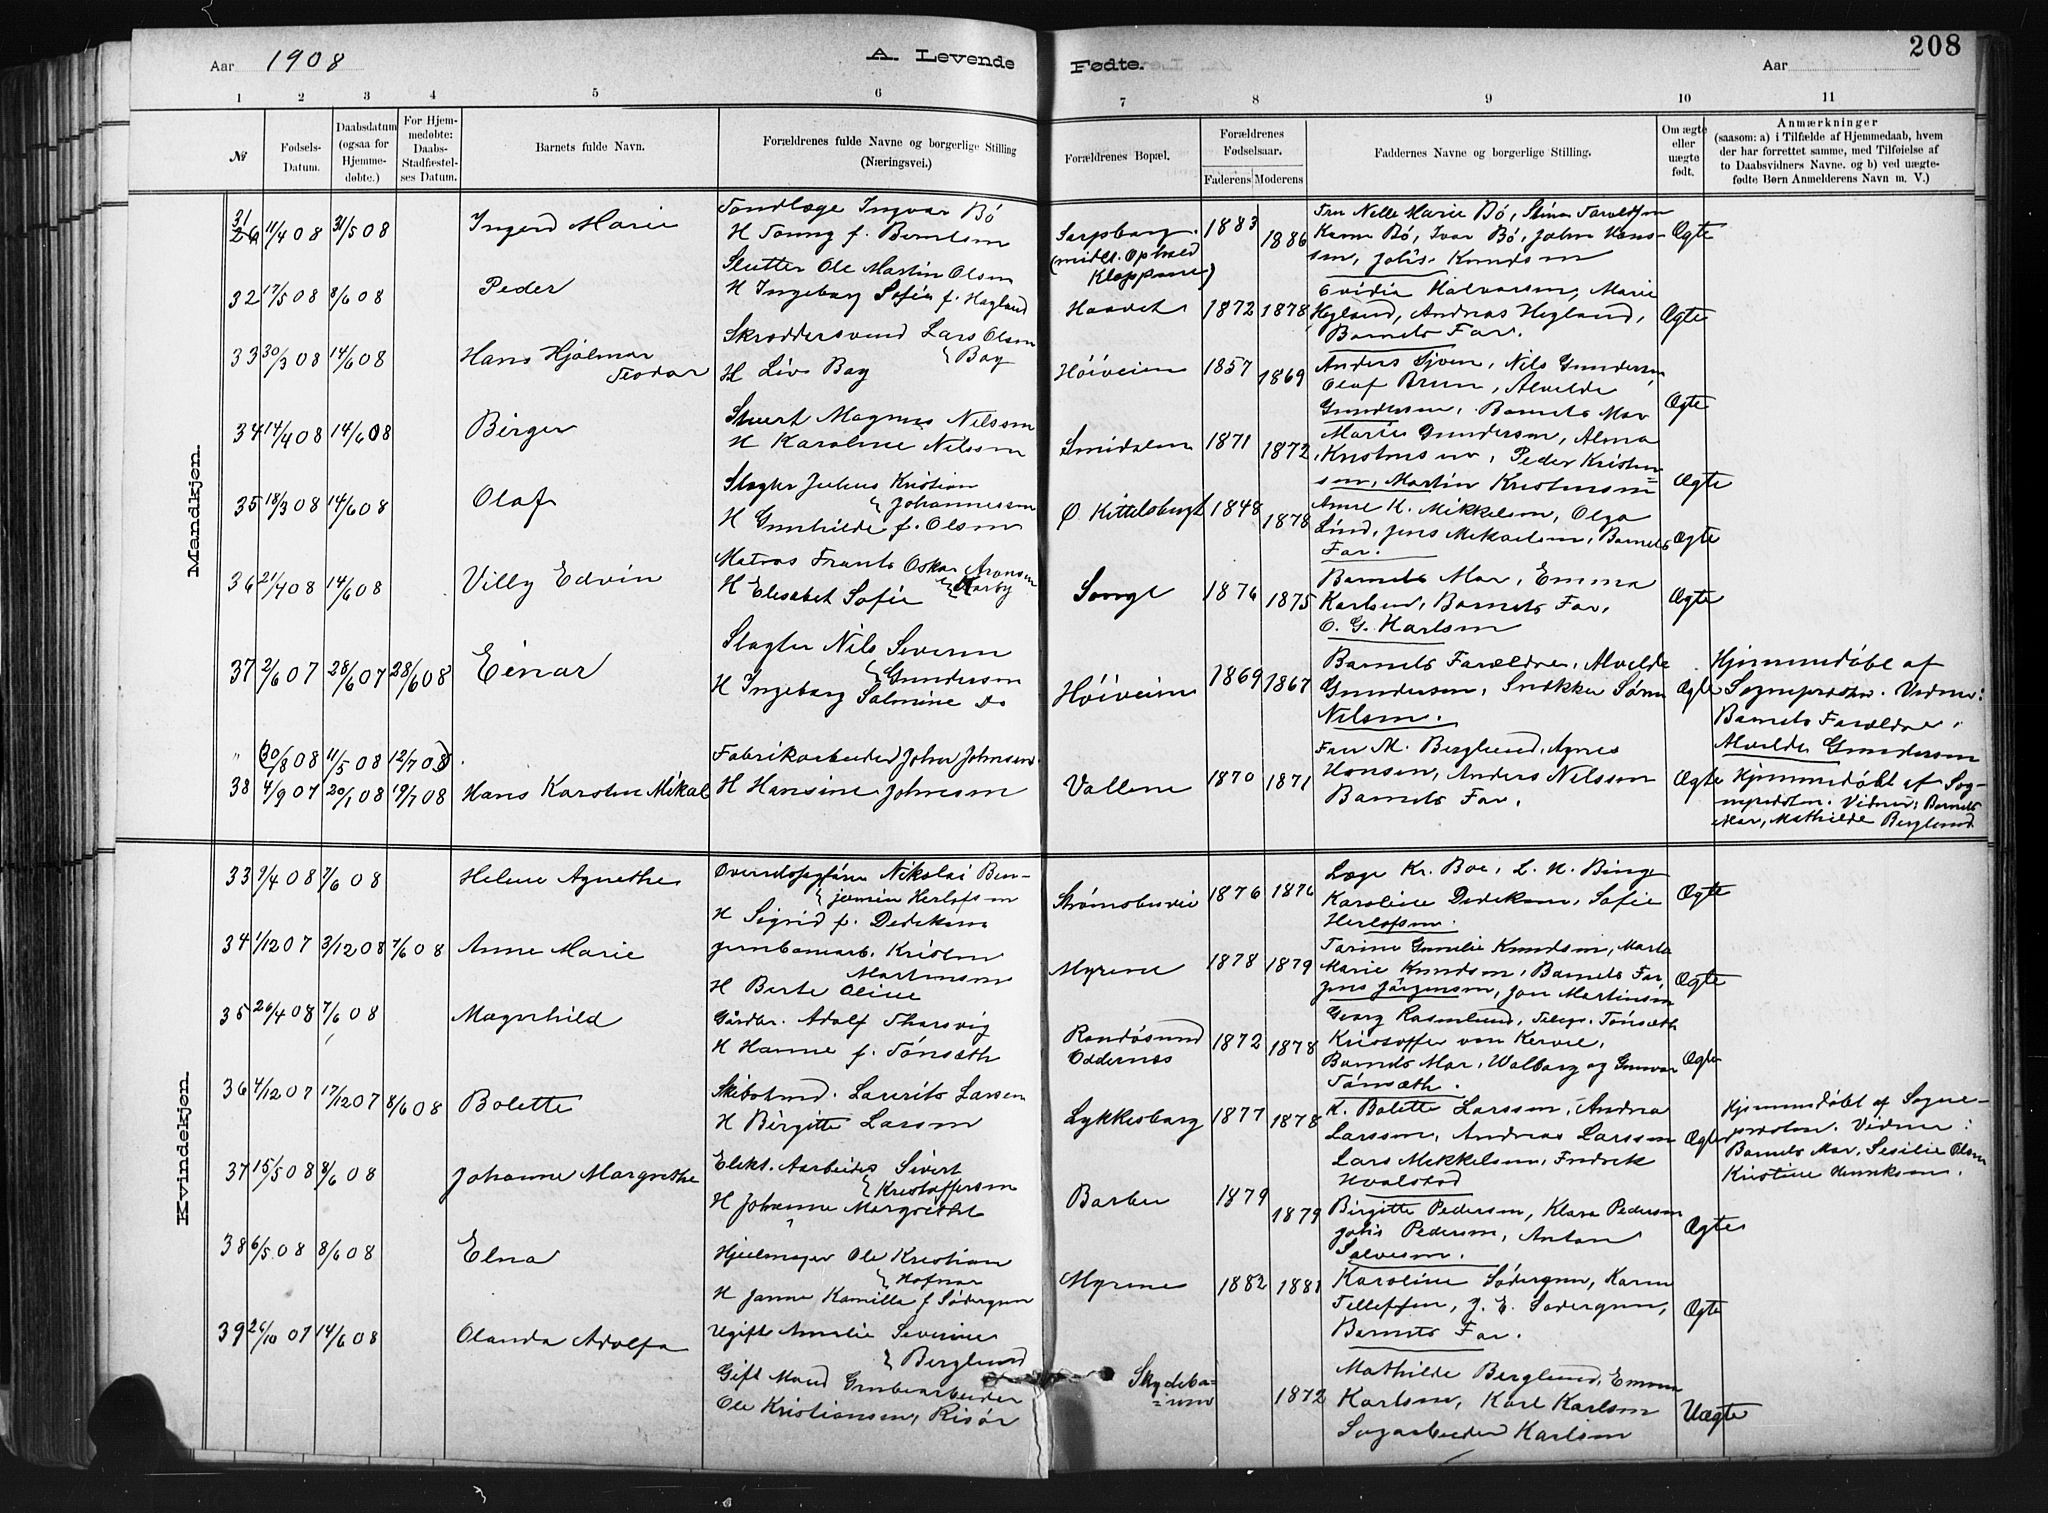 Aar 1908
A. Levende Fødte.
Aar
208
1 2 3 4 5 6 7 8 9 10 11
№
Fødsels-Datum.
Daabsdatum (ogsaa for Hjemmedøbte.)
For Hjemmedøbte: Daabs-Stadfæstelses Datum.
Barnets fulde Navn.
Forældrenes fulde Navne og borgerlige Stilling (Næringsvei.)
Forældrenes Bopæl.
Forældrenes Fødselsaar.
Faderens Moderens
Faddernes Navne og borgerlige Stilling.
Om ægte eller uægte født.
Anmærkninger
(saasom: a) i Tilfælde af Hjemmedaab, hvem
der har forrettet samme, med Tilføielse af
to Daabsvidners Navne, og b) ved uægte-
fødte Børn Anmelderens Navn m. V.)
Mandkjøn.
31 11/4 08 31/5 08 Ingerd Marie
Tandlæge Ingvar Bö
H Tonny f. Berntsen
Sarpsborg. (midl. Ophold Kloppene) 1883 1886
Fru Nelle Marie Bö, Stina
Karen Bö, Ivar Bö, John Hans-
sen, Johs. Knudsen
Ægte
32 17/5 08 8/6 08 Peder
Slutter Ole Martin Olsen
H Ingeborg Sofie f. Hegland
Haavet 1872 1878
Ovidia Halvorsen, Marie
Hegland, Andreas Hegland,
Barnets Far.
Ægte
33 30/3 08 14/6 08 Hans Hjalmar Teodor
Skræddersvend Lars Olsen Bay
H Liva Bay
Höiveien 1857 1869
Anders Sjøen, Nils Gundersen
Olaf Bruun, Alvilde
Gundersen, Barnets Mor
Ægte
34 14/4 08 14/6 08 Birger
Stuert Magnus Nilssen
H Karoline Nilssen
Smidalen 1871 1872
Marie Gundersen, Alma
Kristensen, Peder Kristen
sen, Martin Kristensen
Ægte
35 18/3 08 14/6 08 Olaf
Slagter Julius Kristian Johannessen
H Gunhilde f. Olsen
Ø. Kittelsbugt 1848 1878
Anne K. Mikkelsen, Olga
Lind, Jens Mikaelsen, Barnets
Far.
Ægte
36 21/4 08 14/6 08 Villy Edvin
Matros Frants Oskar Aronsen Narby
H Elisabet Sofie
Songe 1876 1875
Barnets Mor, Emma
Karlsen, Barnets Far,
O. G. Karlsen
Ægte
37 2/6 07 28/6 07 28/6 08 Einar
Slagter Nils Severin Gundersen
H Ingeborg Salmine Do
Höiveien 1869 1867
Barnets Forældre, Alvilde
Gundersen, Snekker Sören
Nilsen.
Ægte
Hjemmedöbt af
Sognepresten. Vidner:
Barnets Forældre,
Alvilde Gundersen
" (30/8 08 11/5 08 12/7 08)
38 4/9 07 20/1 08 19/7 08 Hans Karsten Mikal
Fabrikarbeider John Johnsen
H Hansine Johnsen
Vollene 1870 1871
Fru M. Berglund, Agnes
Hansen, Anders Nilssen
Barnets Far.
Ægte
Hjemmedöbt af Sog-
nepresten. Vidner: Barnets
Mor, Mathilde Berglund
Kvindekjøn.
33 9/4 08 7/6 08 Helene Agnethe
Overretssagfører Nikolai Ben-
jamin Herlofsen
H Sigrid f. Dedekam
Strömsbuvei 1876 1876
Læge Kr. Boe, L. N. Bing
Karoline Dedekam, Sofie
Herlofsen.
Ægte
34 1/12 07 3/12 08 7/6 08 Anne Marie
Jernbanearb. Kristen Martinsen
H Berte Oline
Myrene 1878 1879
Tarine Gunelie Knudsen, Marta
Marie Knudsen, Barnets Far,
Jens Jörgensen, Jon Martinsen
Ægte
35 26/4 08 7/6 08 Magnhild
Gårdbr. Adolf Tharsvig
H Hanne f. Tönseth
Randösund Oddernæs 1872 1878
Georg Rasmlund, Telegr. Tönseth
Kristoffer von Kervel,
Barnets Mor, Walborg og Gunvor
Tönseth.
Ægte
36 4/12 07 17/12 07 8/6 08 Bolette
Skibstmd. Laurits Larsen
H Birgitte Larsen
Lykkesborg 1877 1878
K. Bolette Larssen, Andrea
Larssen, Andreas Larssen
Lars Mikkelsen, Fredrik
Hvalstad
Ægte
Hjemmedöbt af Sogne-
presten. Vidner:
Barnets Mor, Sesilie Olsen
Kristine Henriksen.
37 15/5 08 8/6 08 Johanne Margrethe
Elekt. Aarbeider Sivert Kristoffersen
H Johanne Margrethe
Barbu 1879 1879
Birgitte Pedersen, Klara Pedersen
Johs Pedersen, Anton
Salvesen.
Ægte
38 6/5 08 8/6 08 Elna
Hjulmager Ole Kristian Hofnar
H Janna Kamilla f Södergren
Myrene 1882 1881
Karoline Södergren, Karen
Tellefsen, J. E. Södergren,
Barnets Far.
Ægte
39 26/10 07 14/6 08 Olanda Adolfa
Ugift Amalie Severine Berglund
Gift Mand Grubearbeider
Ole Kristiansen, Risör
Skydeba-
nen 1872
Mathilde Berglund, Emma
Karlsen, Karl Karlsen
Sagarbeider Karlsen
Uægte